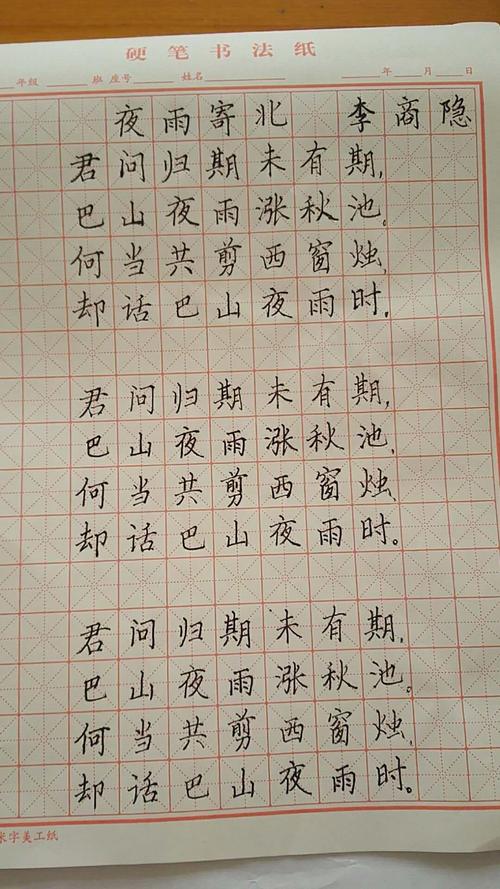 硬笔书法纸
年级 班 座号 姓名 年 月 日
夜雨寄北 李商隐
君问归期未有期，
巴山夜雨涨秋池。
何当共剪西窗烛，
却话巴山夜雨时。
君问归期未有期，
巴山夜雨涨秋池，
何当共剪西窗烛，
却话巴山夜雨时。
君问归期未有期，
巴山夜雨涨秋池。
何当共剪西窗烛，
却话巴山夜雨时。
米字美工纸